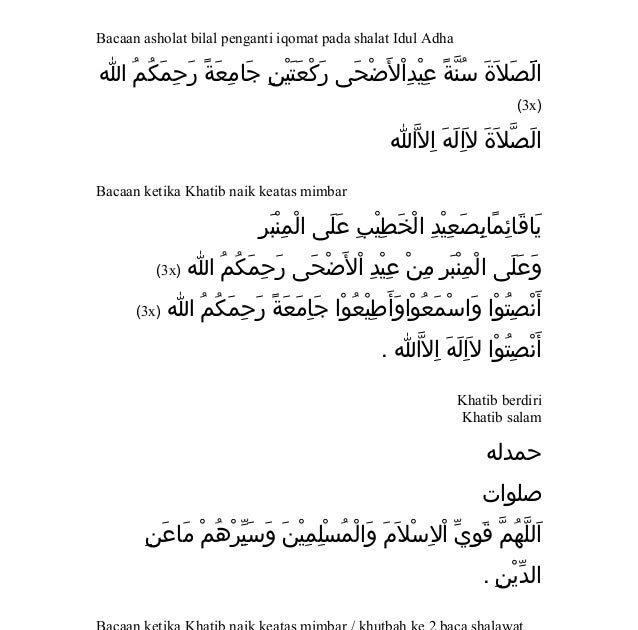 Bacaan asholat bilal penganti iqomat pada shalat Idul Adha
اَلصَلاَةَ سُنَّةً عِيْدِاْلأَضْحَى رَكْعَتَيْنِ جَامِعَةً رَحِمَكُمُ الله
(3x)
اَلصَّلاَةَ لاَاِلَهَ اِلاَّالله
Bacaan ketika Khatib naik keatas mimbar
يَاقَائِمًابِصَعِيْدِ الْخَطِيْبِ عَلَى الْمِنْبَرِ
وَعَلَى الْمِنْبَرِ مِنْ عِيْدِ اْلأَضْحَى رَحِمَكُمُ الله (3x)
أَنْصِتُوْا وَاسْمَعُوْاوَأَطِيْعُوْا جَاِمَعَةً رَحِمَكُمُ الله (3x)
أَنْصِتُوْا لاَاِلَهَ اِلاَّالله .
Khatib berdiri
Khatib salam
حمدله
صلوات
اَللَّهُمَّ قَوِيِّ اْلاِسْلاَمَ وَالْمُسْلِمِيْنَ وَسَيِّرْهُمْ مَاعَنِ
الدِّيْنِ .
Bacaan ketika Khatib naik keatas mimbar / khutbah ke 2 baca shalawat